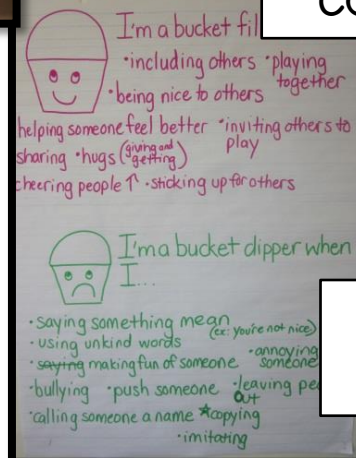 I'm a bucket fil
•including others •playing together
•being nice to others
helping someone feel better •inviting others to play
sharing •hugs (giving and getting)
cheering people ↑ •sticking up for others
I'm a bucket dipper when
I...
•saying something mean (ex: you're not nice)
•using unkind words
•saying making fun of someone •annoying someone
•bullying •push someone •leaving pe out
•calling someone a name ★copying
•imitating